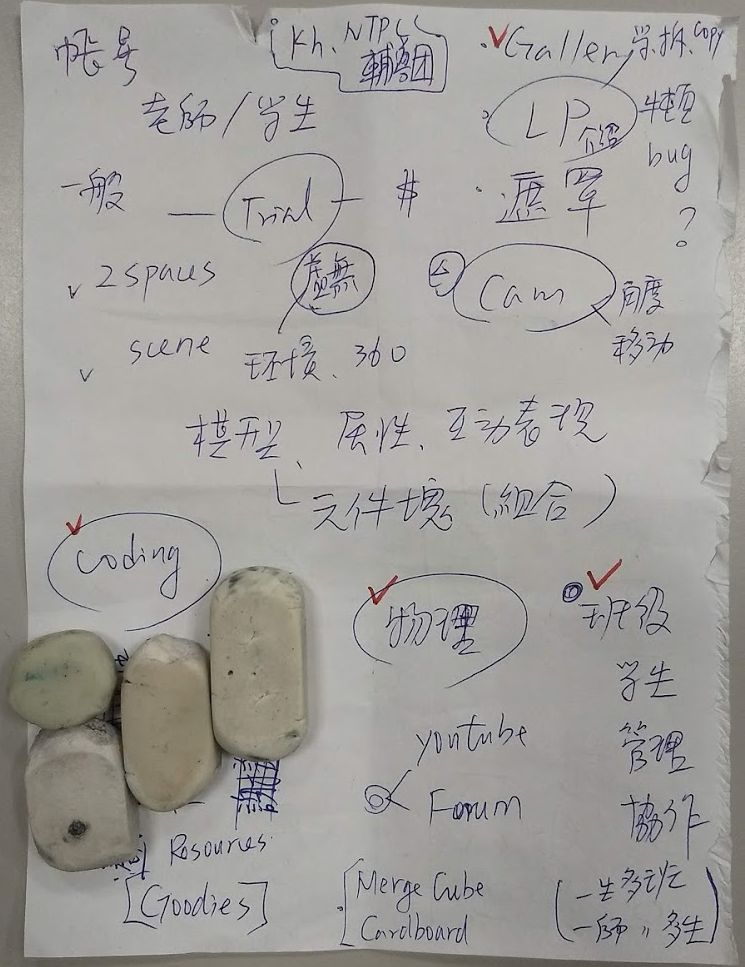 帐号
Kh、NTPC
輔諮团
Gallery 学.拆.Copy
老師/学生
LP 介紹
卡頓
bug
?
一般 — Trial — $
遮罩
2 spaces
虛無
Cam
角度
移动
scene
环境、360
模型、属性、互动表现
元件塊(組合)
Coding
物理
班级
学生
管理
协作
youtube
Forum
Resources
[Goodies]
Merge Cube
Cardboard
(一生多班
一師〃多生)